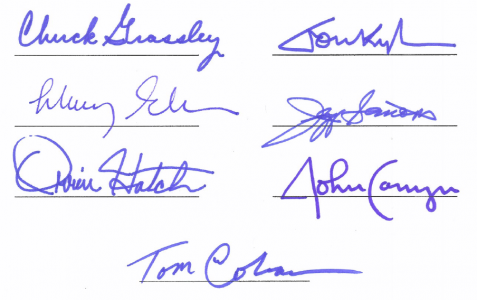 Chuck Grassley Jon Kyl
Jeff Sessions
Orrin Hatch John Cornyn
Tom Coburn